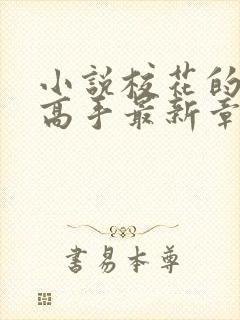 小説校花的
高手最新章
書易本尊